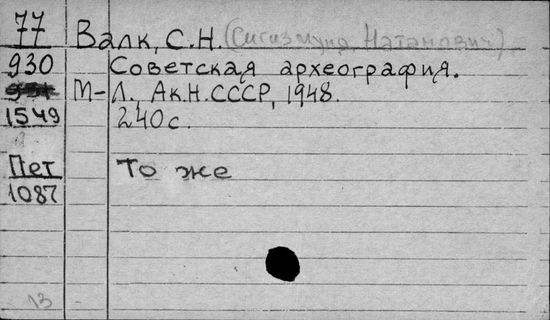 77 Валк, С.Н. (Сигизмунд Натанович)
930 Советская археография.
М-Л., Ак.Н.СССР, 1948.
1549 240 с.
Пет То же
1087
13